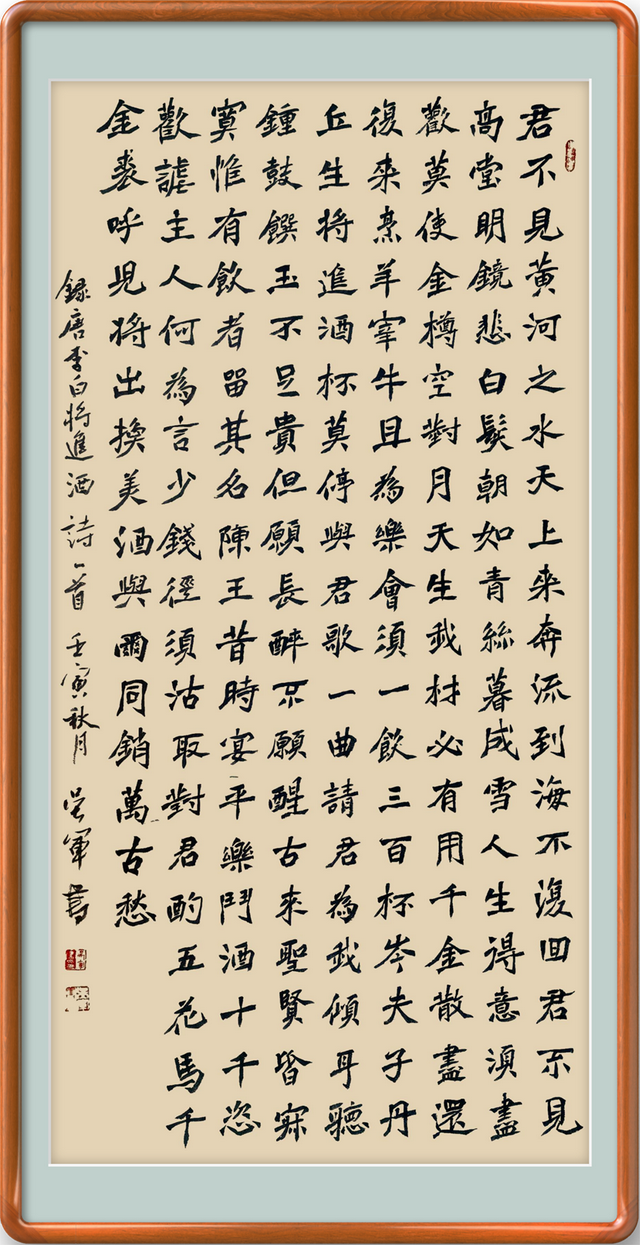 君不見黃河之水天上来奔流到海不復回君不見
高堂明鏡悲白髮朝如青絲暮成雪人生得意須盡
歡莫使金樽空對月天生我材必有用千金散盡還
復来烹羊宰牛且為樂會須一飲三百杯岑夫子丹
丘生將進酒杯莫停與君歌一曲請君為我傾耳聽
鍾鼓饌玉不足貴但願長醉不願醒古来聖賢皆寂
寞惟有飲者留其名陳王昔時宴平樂鬥酒十千恣
歡謔主人何為言少錢徑須沽取對君酌五花馬千
金裘呼兒將出換美酒與爾同銷萬古愁
錄唐李白將進酒詩一首壬寅秋月吳軍書